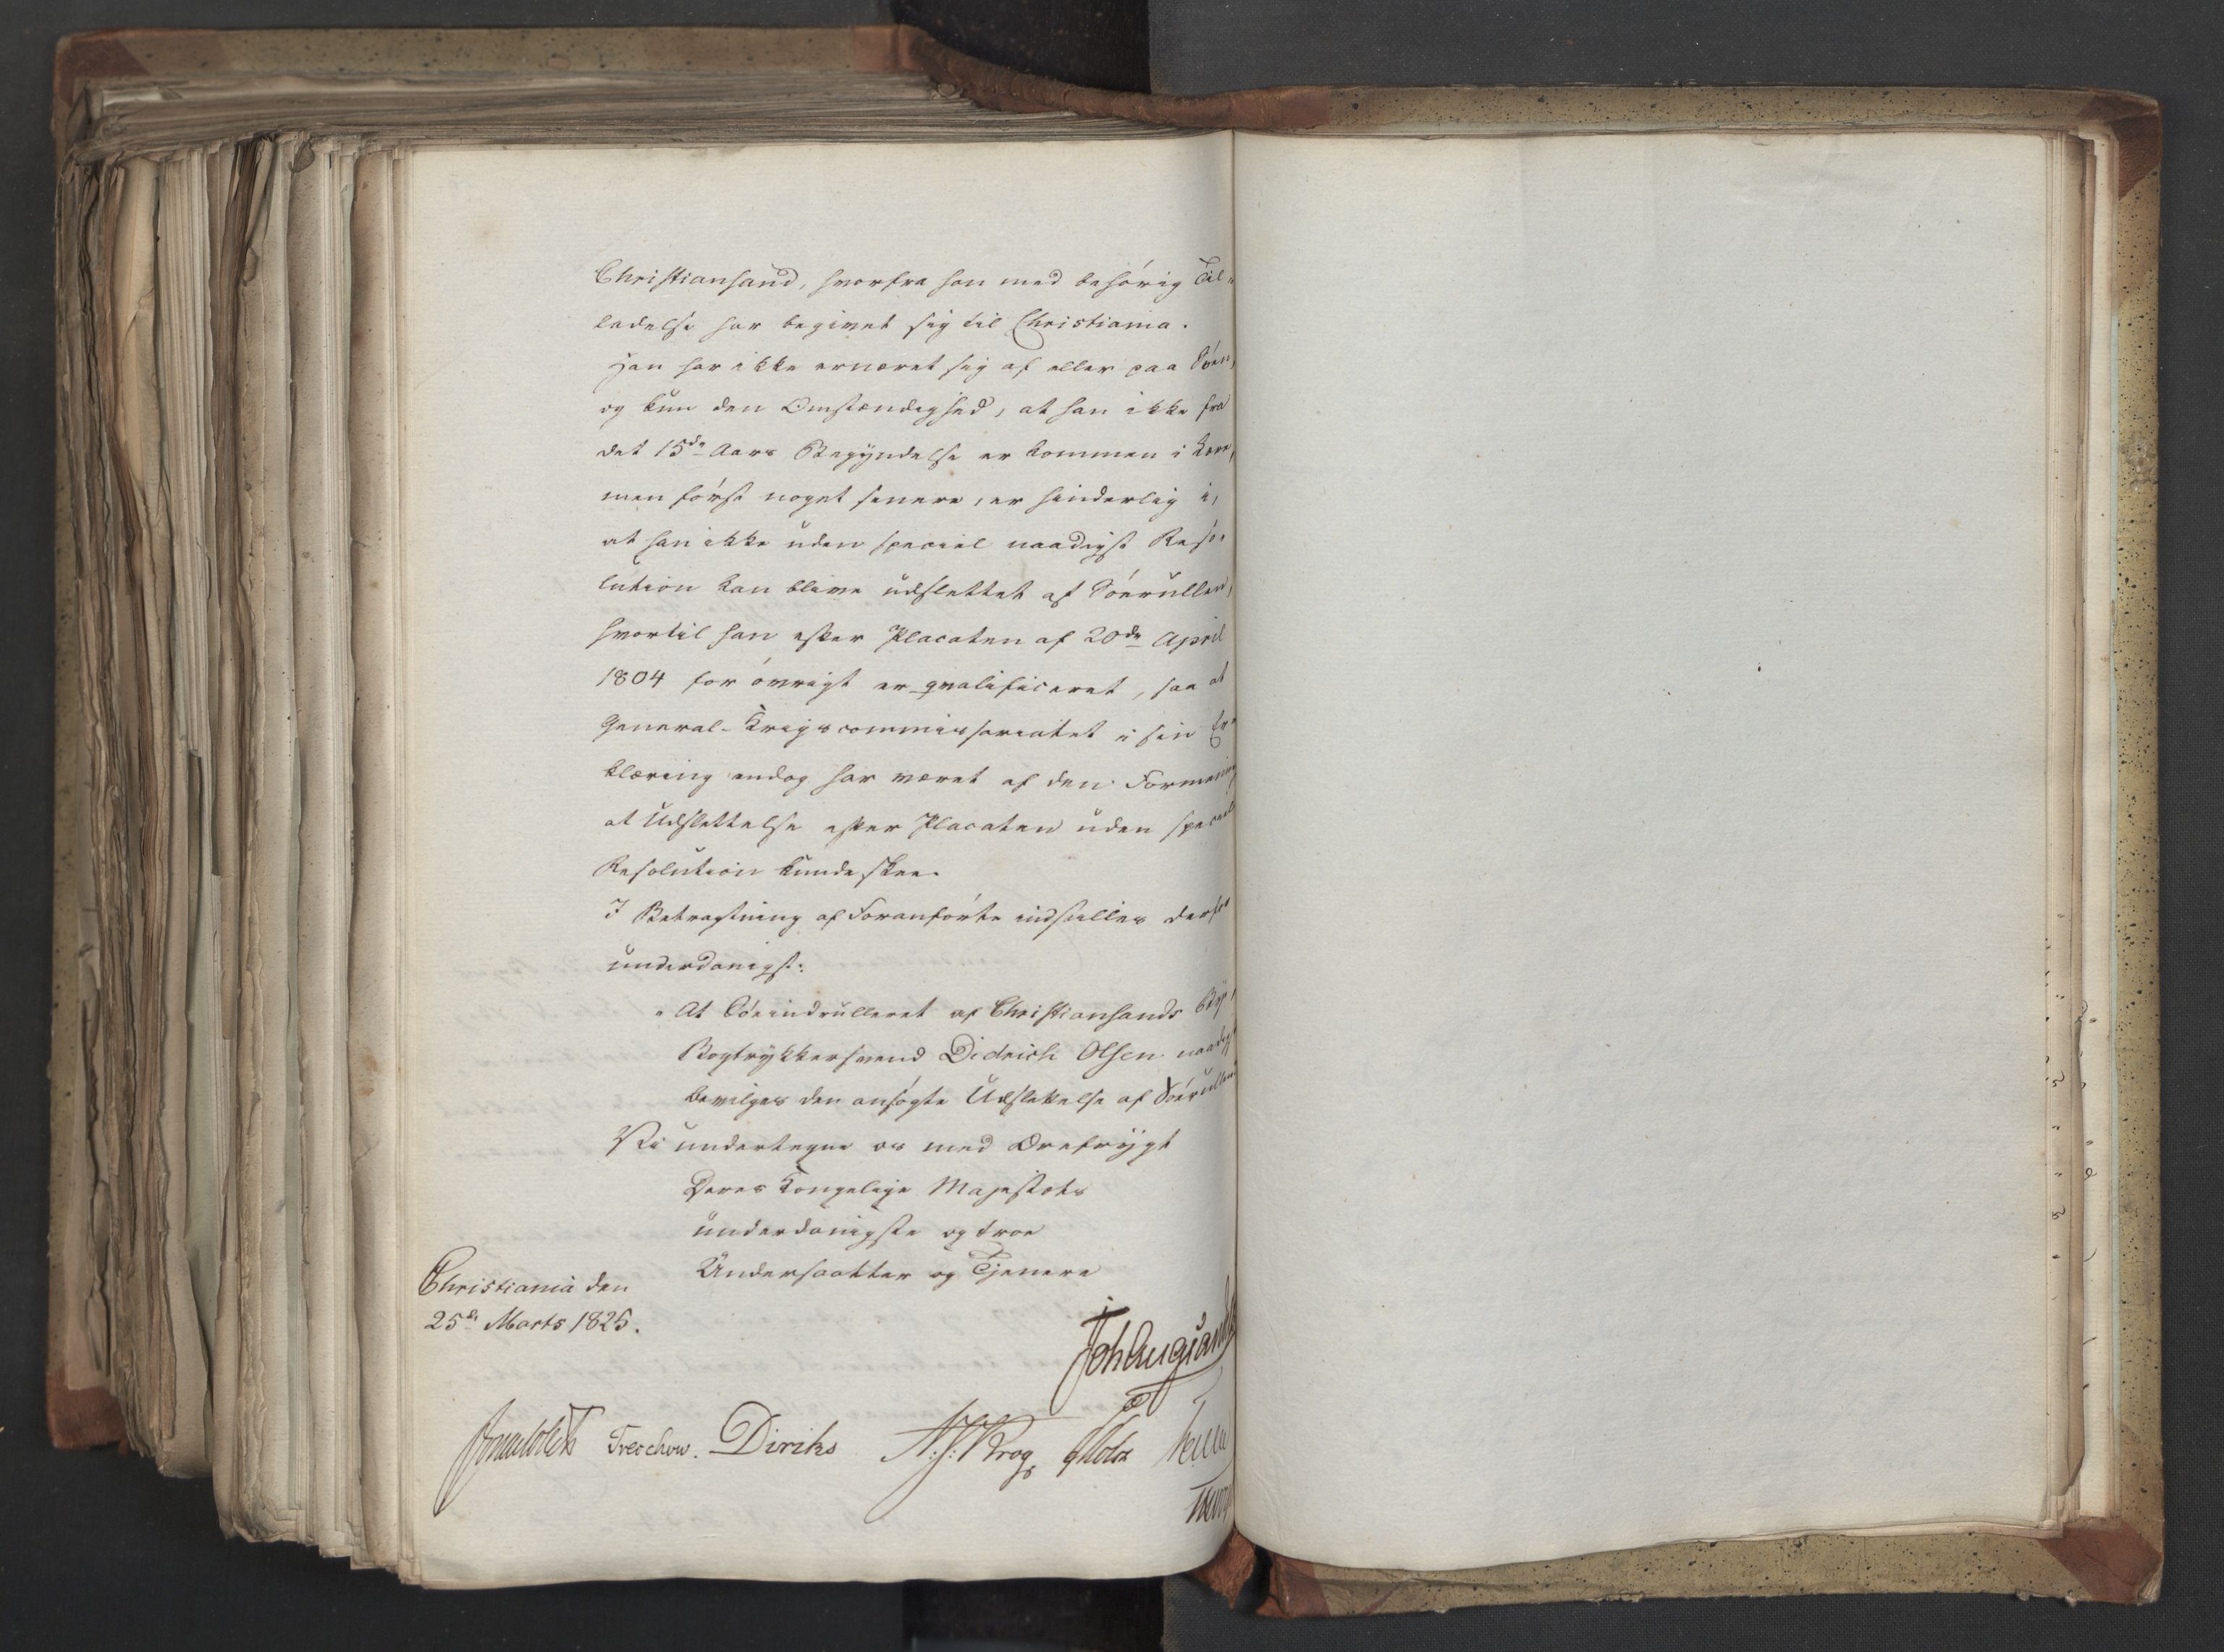 Christiansand, hvorfra han med behørig Til„
ladelse har begivet sig til Christiania.
Han har ikke ernæret sig af eller paa Søen,
og kun den Omstændighed, at han ikke fra
det 15de Aars Begyndelse er kommen i Lære,
men først noget senere, er hinderlig i,
at han ikke uden speciel naadigst Reso„
lution kan blive udslettet af Søerullen,
hvortil han efter Placaten af 20de April
1804 for øvrigt er qvalificeret, saa at
General-Krigscommissariatet i sin Er„
klæring endog har været af den Formening
at Udslettelse efter Placaten uden speciel
Resolution kunde skee.
I Betragtning af Foranførte indstilles derfor
underdanigst:
„At Søeindrulleret af Christiansands Bye,
Bogtrykkersvend Didrich Olsen naadigst
bevilges den ansøgte Udslettelse af Søerullen
Vi undertegne os med Ærefrygt
Deres Kongelige Majestæts
underdanigste og troe
Undersaatter og Tjenere
Christiania den
25de Marts 1825.
Joh Aug Sand
Treschow. Diriks Krog Holst